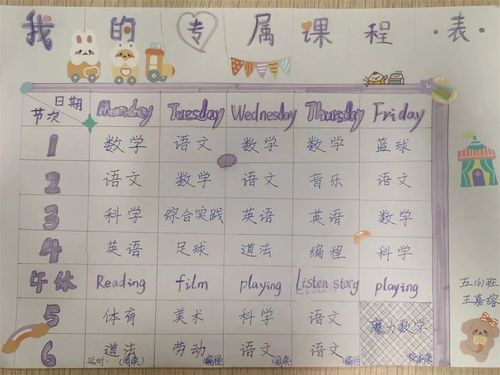 我的专属课程·表·
日期 节次 Monday Tuesday Wednesday Thursday Friday
1 数学 语文 数学 数学 篮球
2 语文 数学 语文 音乐 语文
3 科学 综合实践 英语 英语 数学
4 英语 足球 道法 编程 科学
午休 Reading film playing Listen story playing
5 体育 美术 科学 语文 魔力数学
6 道法 劳动 语文 语文
延时: (阅读) (编程) (阅读) (编程)